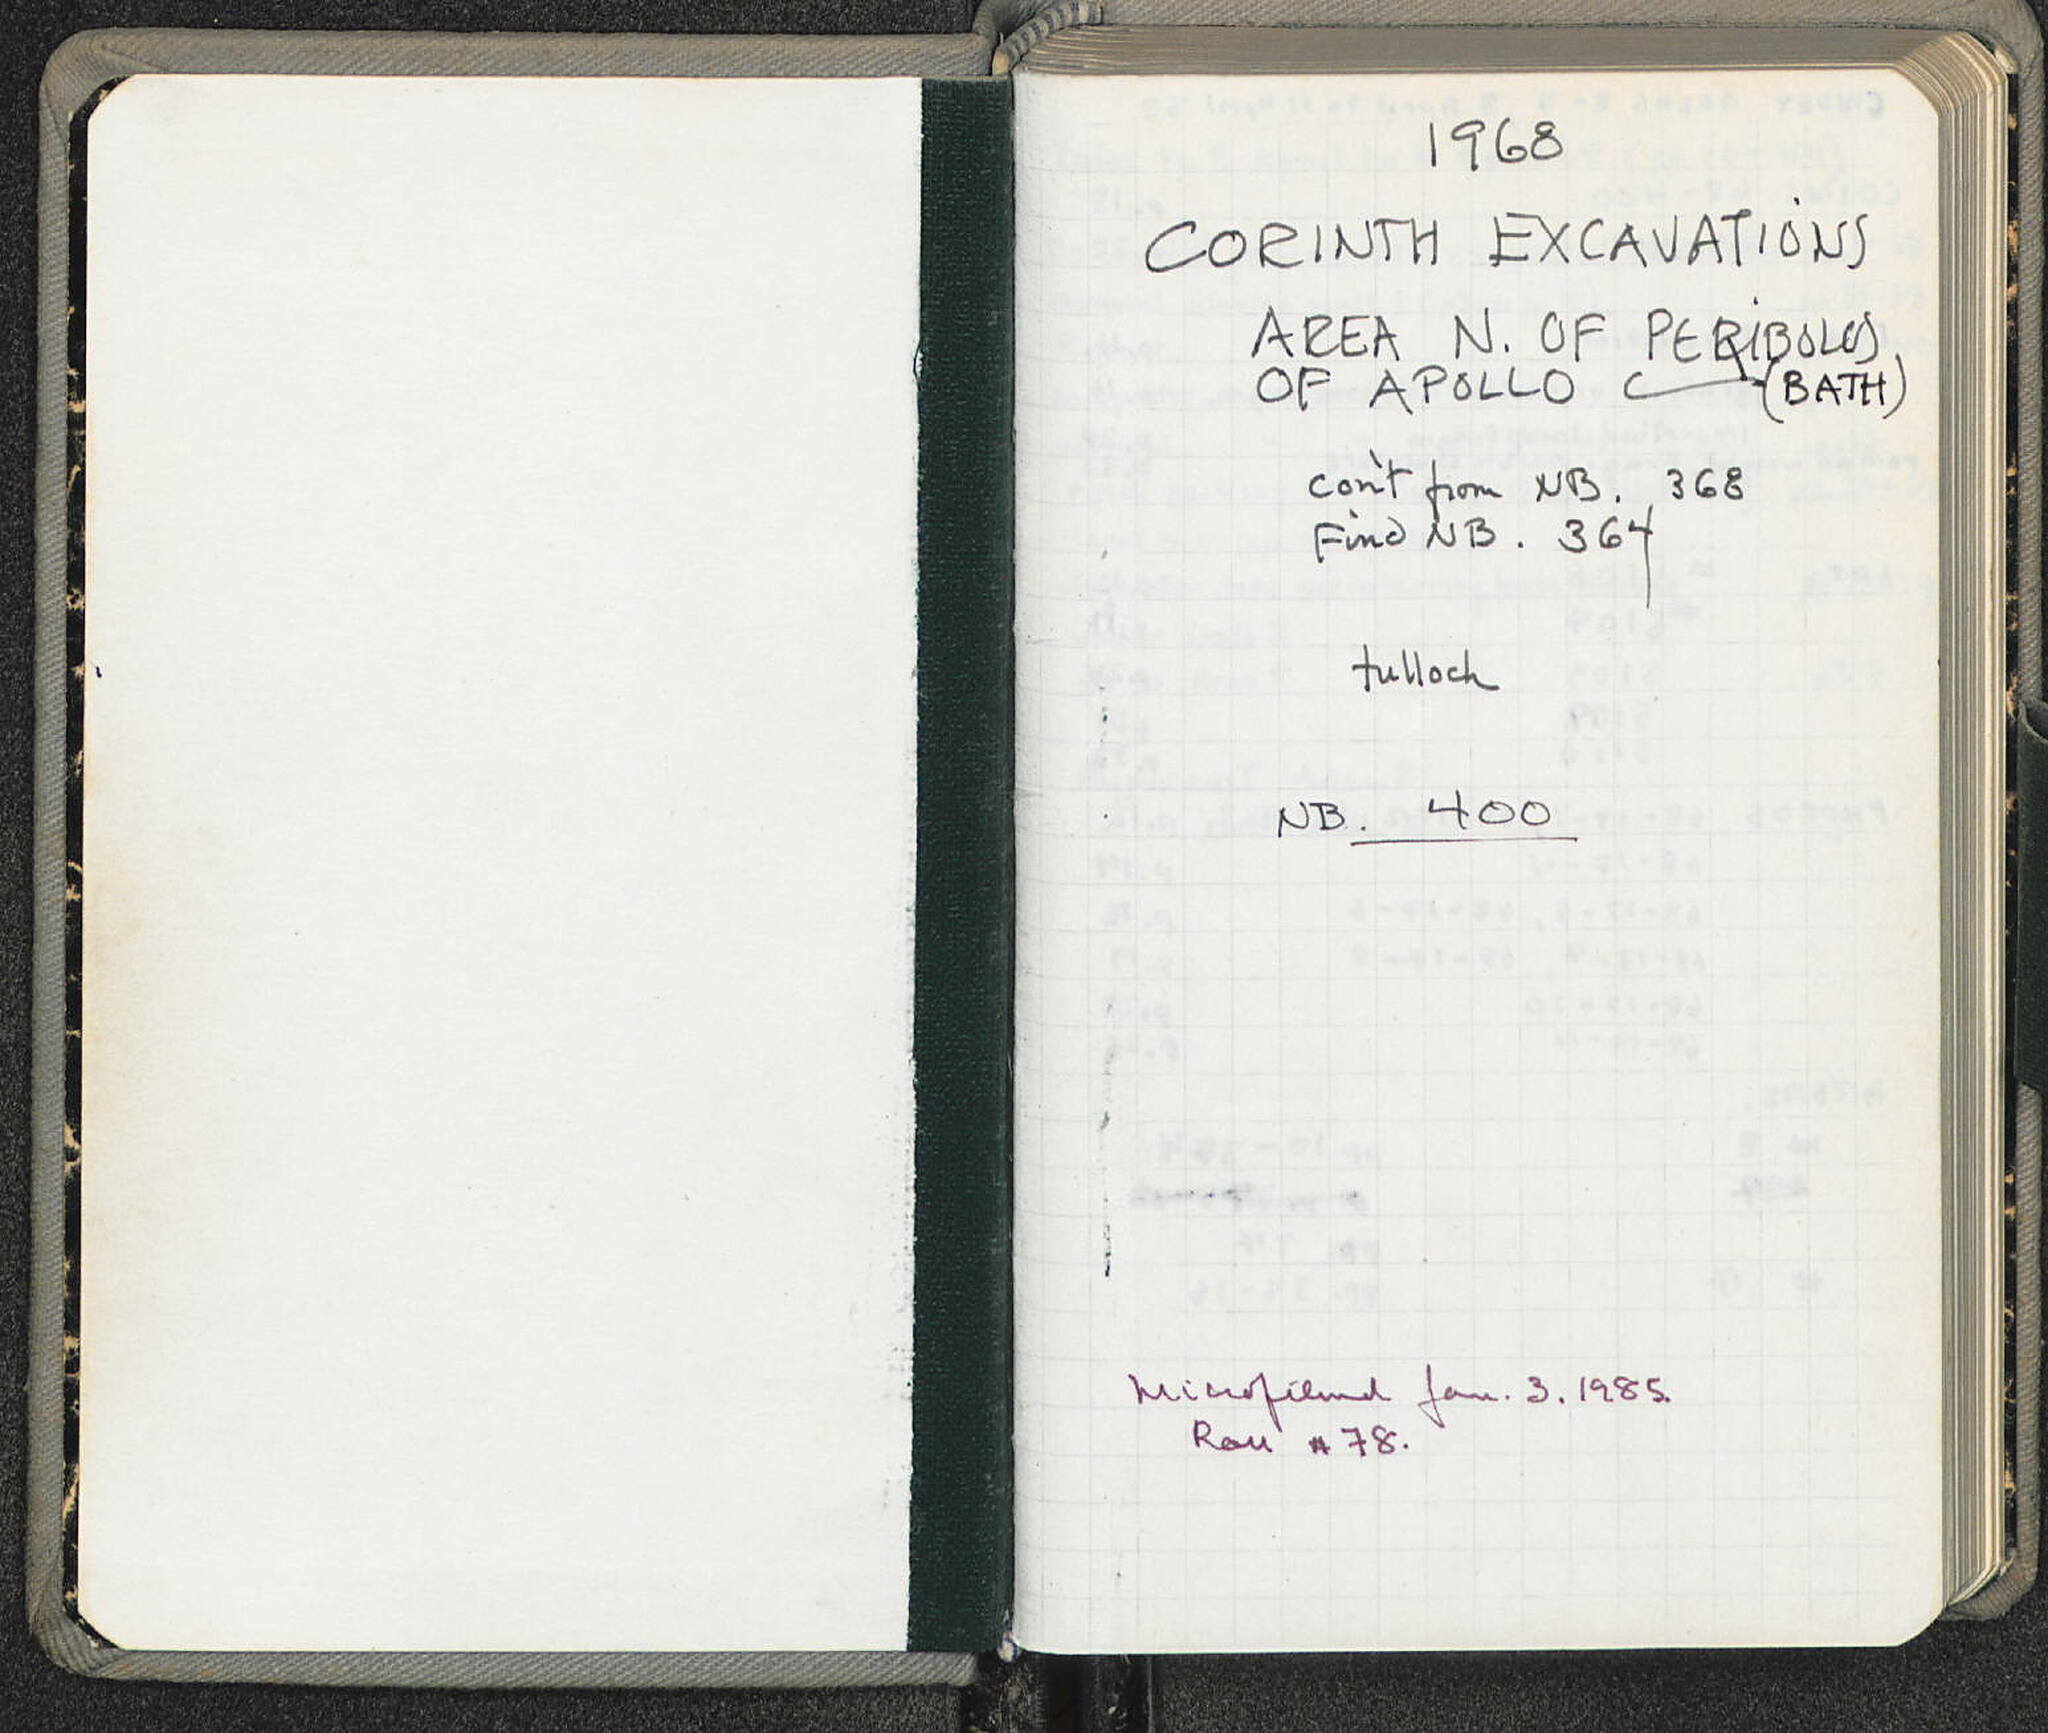 1968
CORINTH EXCAVATIONS
AREA N. OF PERIBOLOS
OF APOLLO (BATH)
con't from NB. 368
Find NB. 364
tulloch
NB. 400
Microfilmed Jan. 3. 1985.
Roll #78.